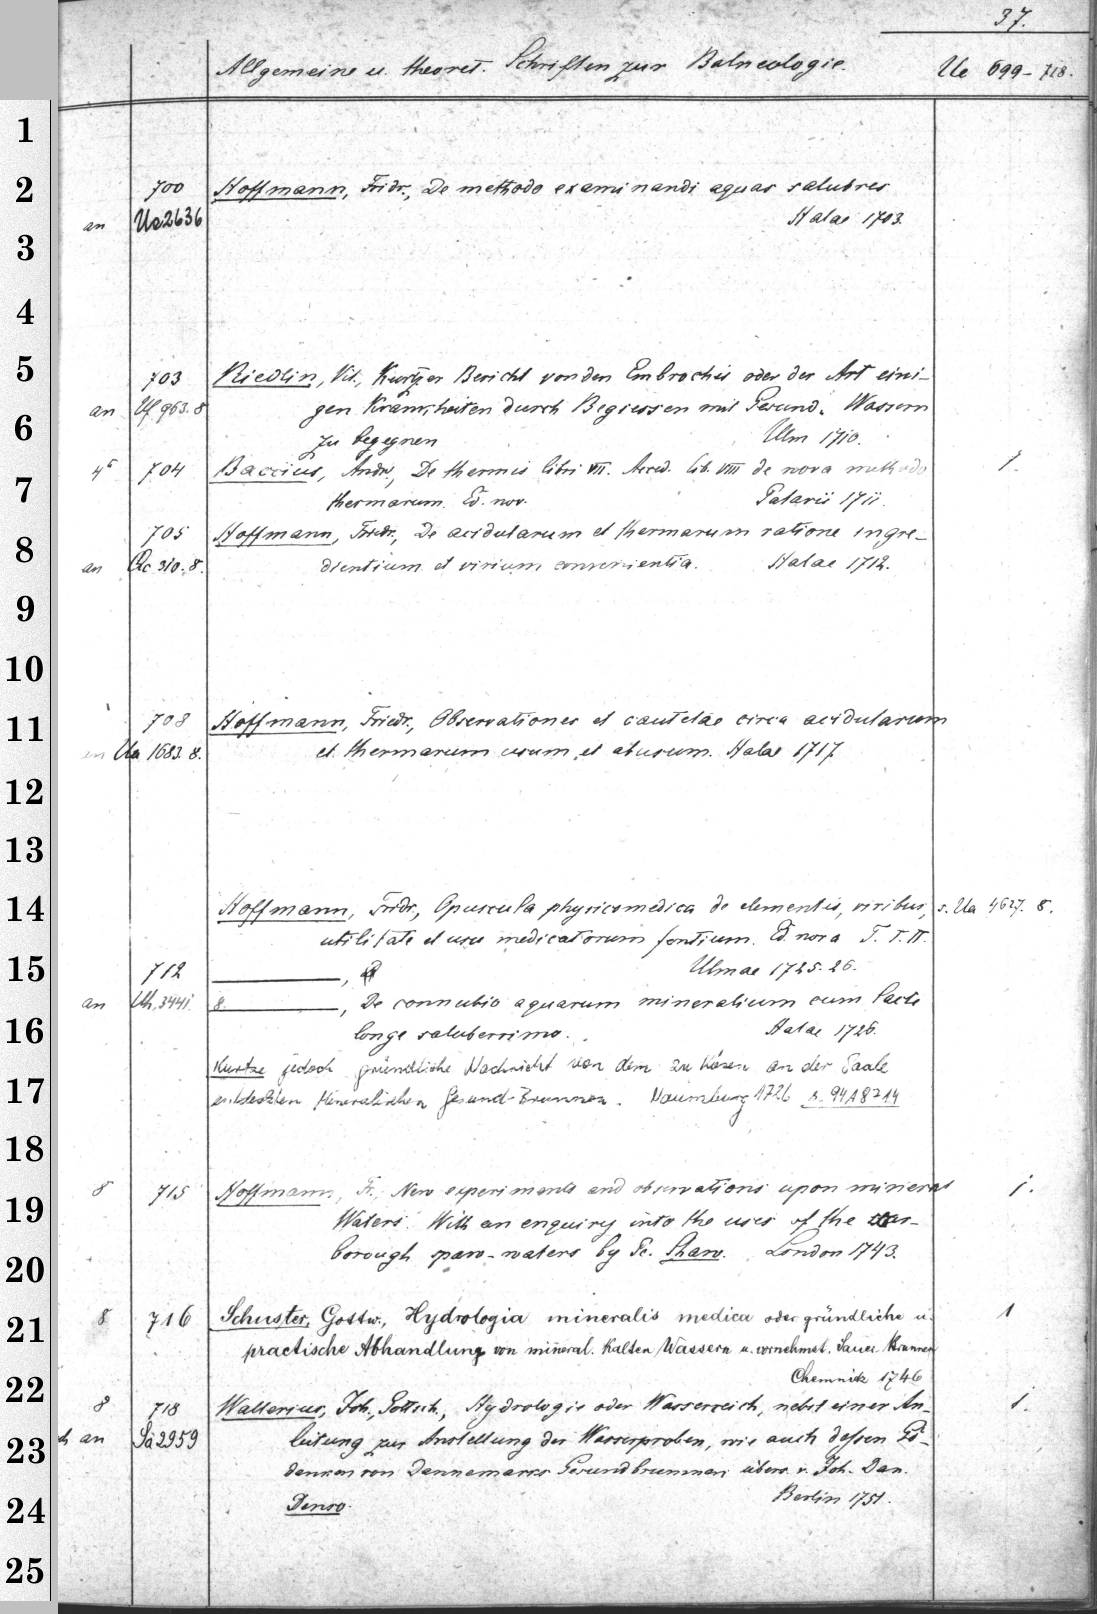 37.
Allgemeine u. theoret. Schriften zur Balneologie. Ue 699-718.
1
2
3
4
5
6
7
8
9
10
11
12
13
14
15
16
17
18
19
20
21
22
23
24
25
700 Hoffmann, Fridr., De methodo examinandi aquas salubres
an Ue 2636 Halae 1703.
703 Riedlin, Vit., Kurtzer Bericht von den Embrochis oder der Art eini-
an Uf. 963. 8 gen Krankheiten durch Begiessen mit Gesund. Wassern
zu begegnen Ulm 1710.
704 Baccius, Andr., De thermis libri VII. Acced. lib. VIII de nova methodo 1.
thermarum. Ed. nov. Patavii 1711.
705 Hoffmann, Fridr., De acidularum et thermarum ratione ingre-
an 310. 8. dientium et virium convenientia. Halae 1712.
708 Hoffmann, Friedr., Observationes et cautelae circa acidularum
an Ua 1683. 8. et thermarum usum et abusum. Halae 1717.
Hoffmann, Fridr., Opuscula physico medica de elementis, viribus, s. Ua 4627. 8.
utilitate et usu medicatorum fontium. Ed. nova T. I. II.
712 , Ulmae 1725. 26.
an Uh. 3441. 8. , De connubio aquarum mineralium cum lacte
longe saluberrimo. Halae 1726.
Kurtze jedoch gründliche Nachricht von dem zu Kösen an der Saale
entdeckten Mineralischen Gesund-Brunnen. Naumburg 1726 s. 94 A 8714
8 715 Hoffmann, Fr., New experiments and observations upon mineral 1.
Waters. With an enquiry into the uses of the
borough spaw-waters by Shaw. London 1743.
8 716 Schuster, Gottw., Hydrologia mineralis medica oder gründliche u. 1
practische Abhandlung von mineral. kalten Wassern u. vornehmst. Sauer Brunnen
Chemnitz 1746
8 718 Wallerius, Joh. Gottsch., Hydrologie oder Wasserreich, nebst einer An- 1.
an Sa 2959 leitung zur Anstellung der Wasserproben, wie auch dessen Ge-
danken von Dannemarks Gesundbrunnen übers. v. Joh. Dan.
Denso. Berlin 1751.